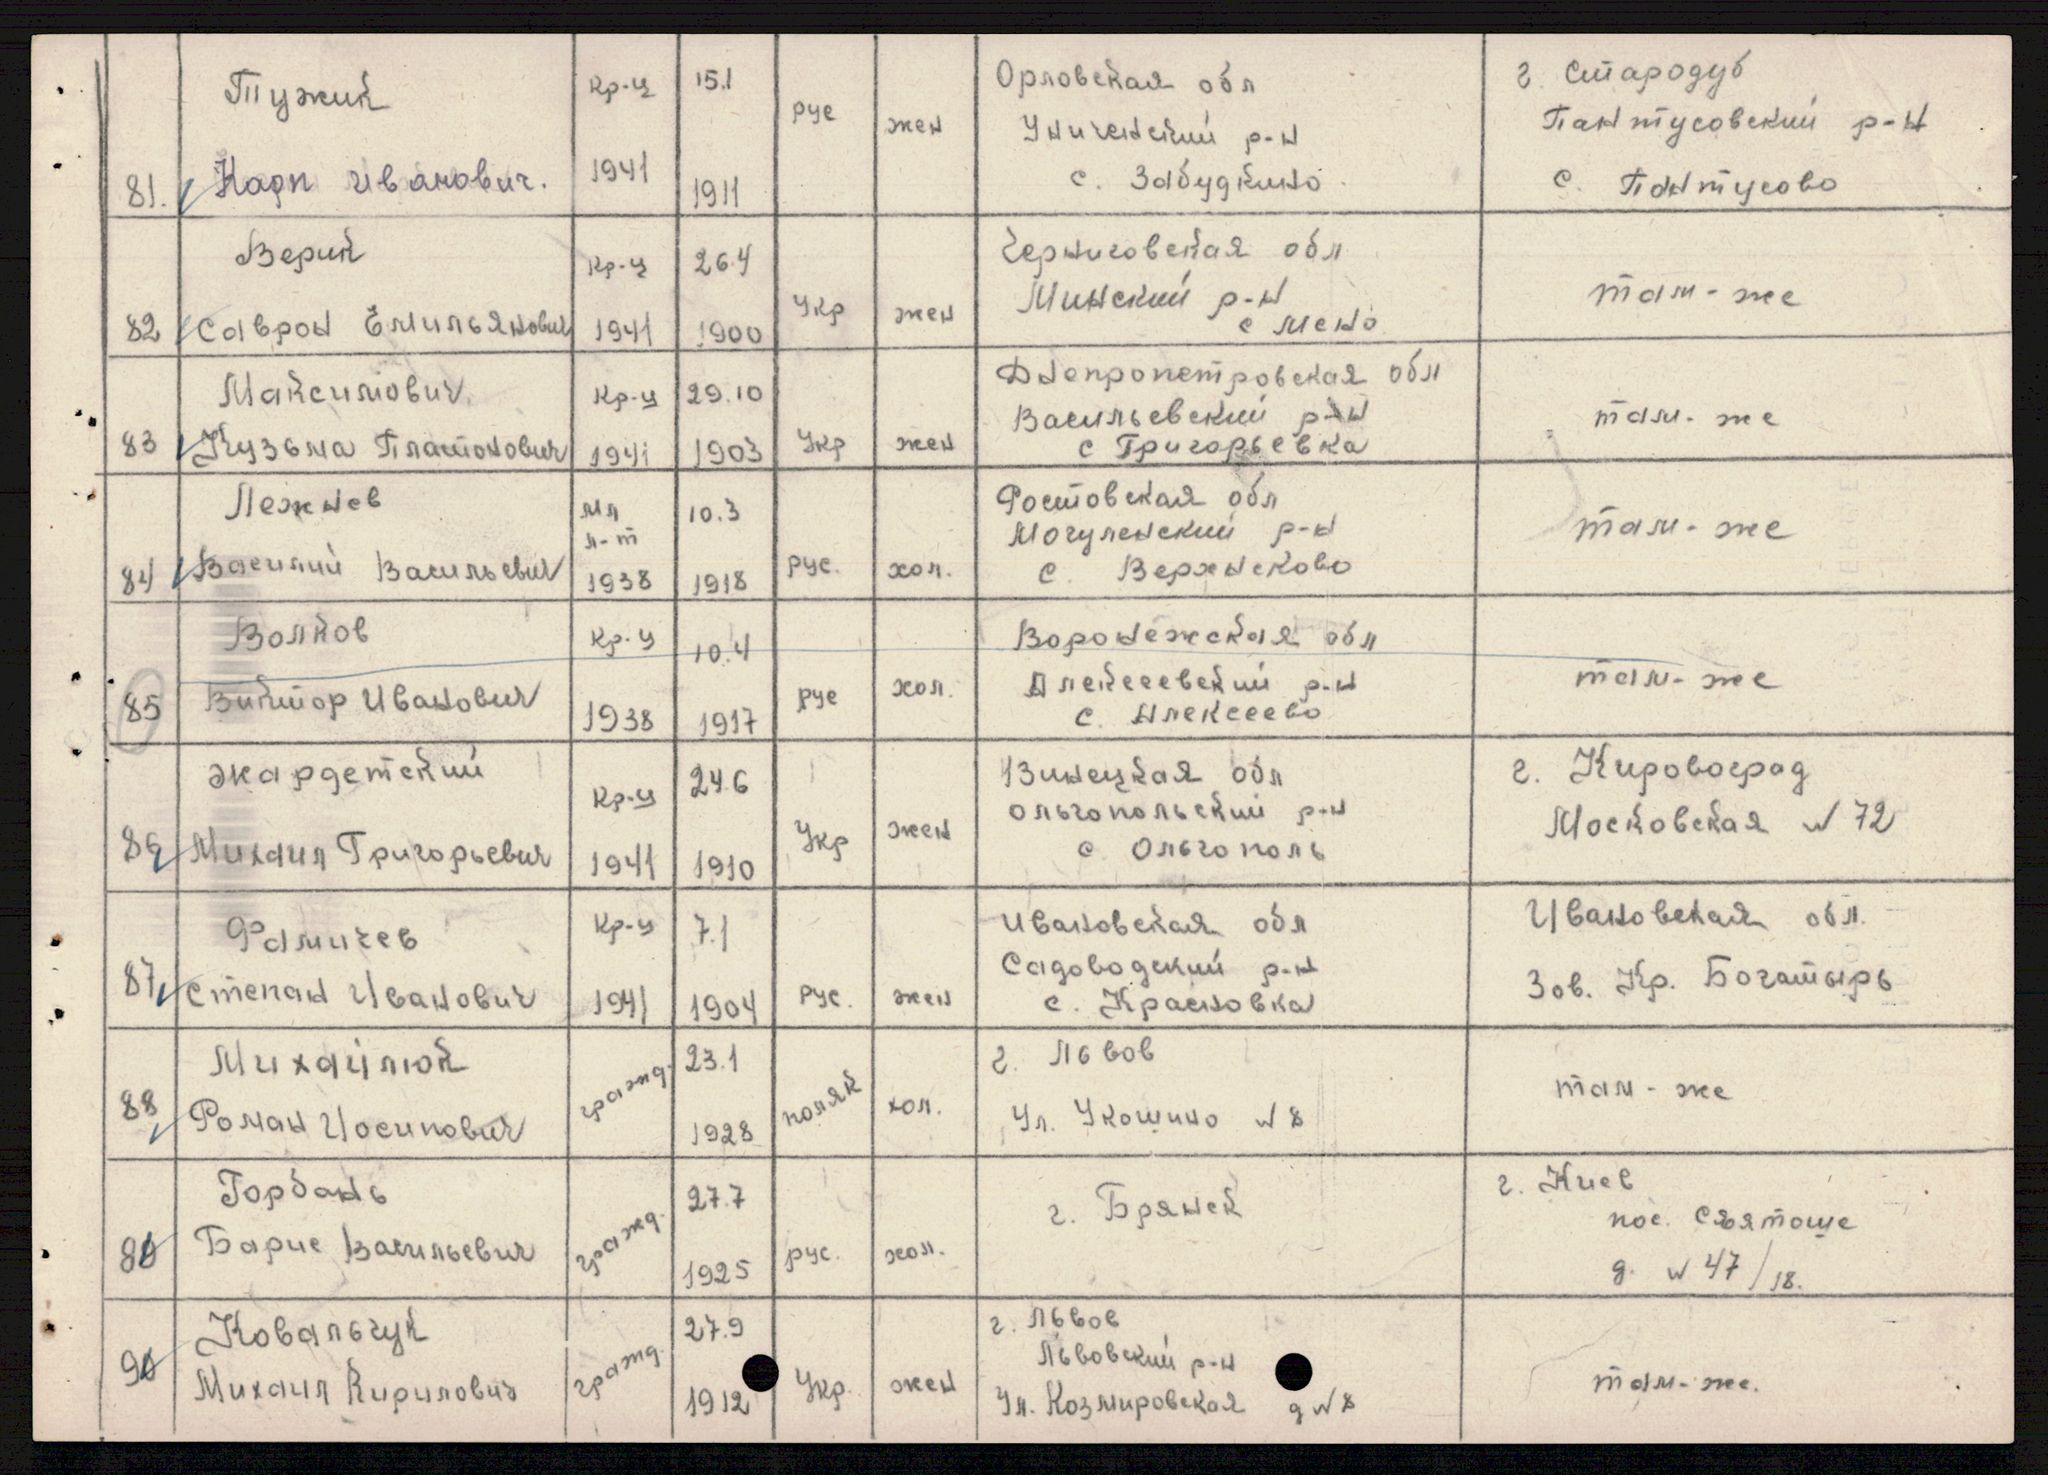 81. Тужик Карп Иванович. кр-ц 1941 15.1 1911 рус жен Орловская обл Униченский р-н с. Забудкино г. Стародуб Пантусовский р-н с. Пантусово
82 Верик Саврон Емильянович кр-ц 1941 26.4 1900 Укр жен Черниговская обл Минский р-н с Мено там-же
83 Максимович Кузьма Платонович кр-ц 1941 29.10 1903 Укр жен Днепропетровская обл Васильевский р-н с Григорьевка там-же
84 Лежнев Василий Васильевич мл л-т 1938 10.3 1918 рус. хол. Ростовская обл Могуленский р-н с. Верхняково там-же
85 Волков Виктор Иванович кр-ц 1938 10.4 1917 рус хол. Воронежская обл Алексеевский р-н с. Алексеево там-же
86 Экардетский Михаил Григорьевич кр-ц 1941 24.6 1910 Укр жен Винецкая обл Ольгопольский р-н с Ольгополь г. Кировоград Московская N 72
87 Фамичев Степан Иванович кр-ц 1941 7.1 1904 рус. жен Ивановская обл Садоводский р-н с. Красновка Ивановская обл. Зов. Кр. Богатырь
88 Михайлюк Роман Иосипович гражд. 23.1 1928 поляк хол. г. Львов Ул. Укошино N 8 там-же
89 Горбань Барис Васильевич гражд. 27.7 1925 рус. хол. г. Брянск г. Киев пос. Святоше д. N 47/18.
90 Ковальчук Михаил Кирилович гражд. 27.9 1912 Укр. жен г. Львов Львовский р-н Ул. Козмировская д N 8 там-же.